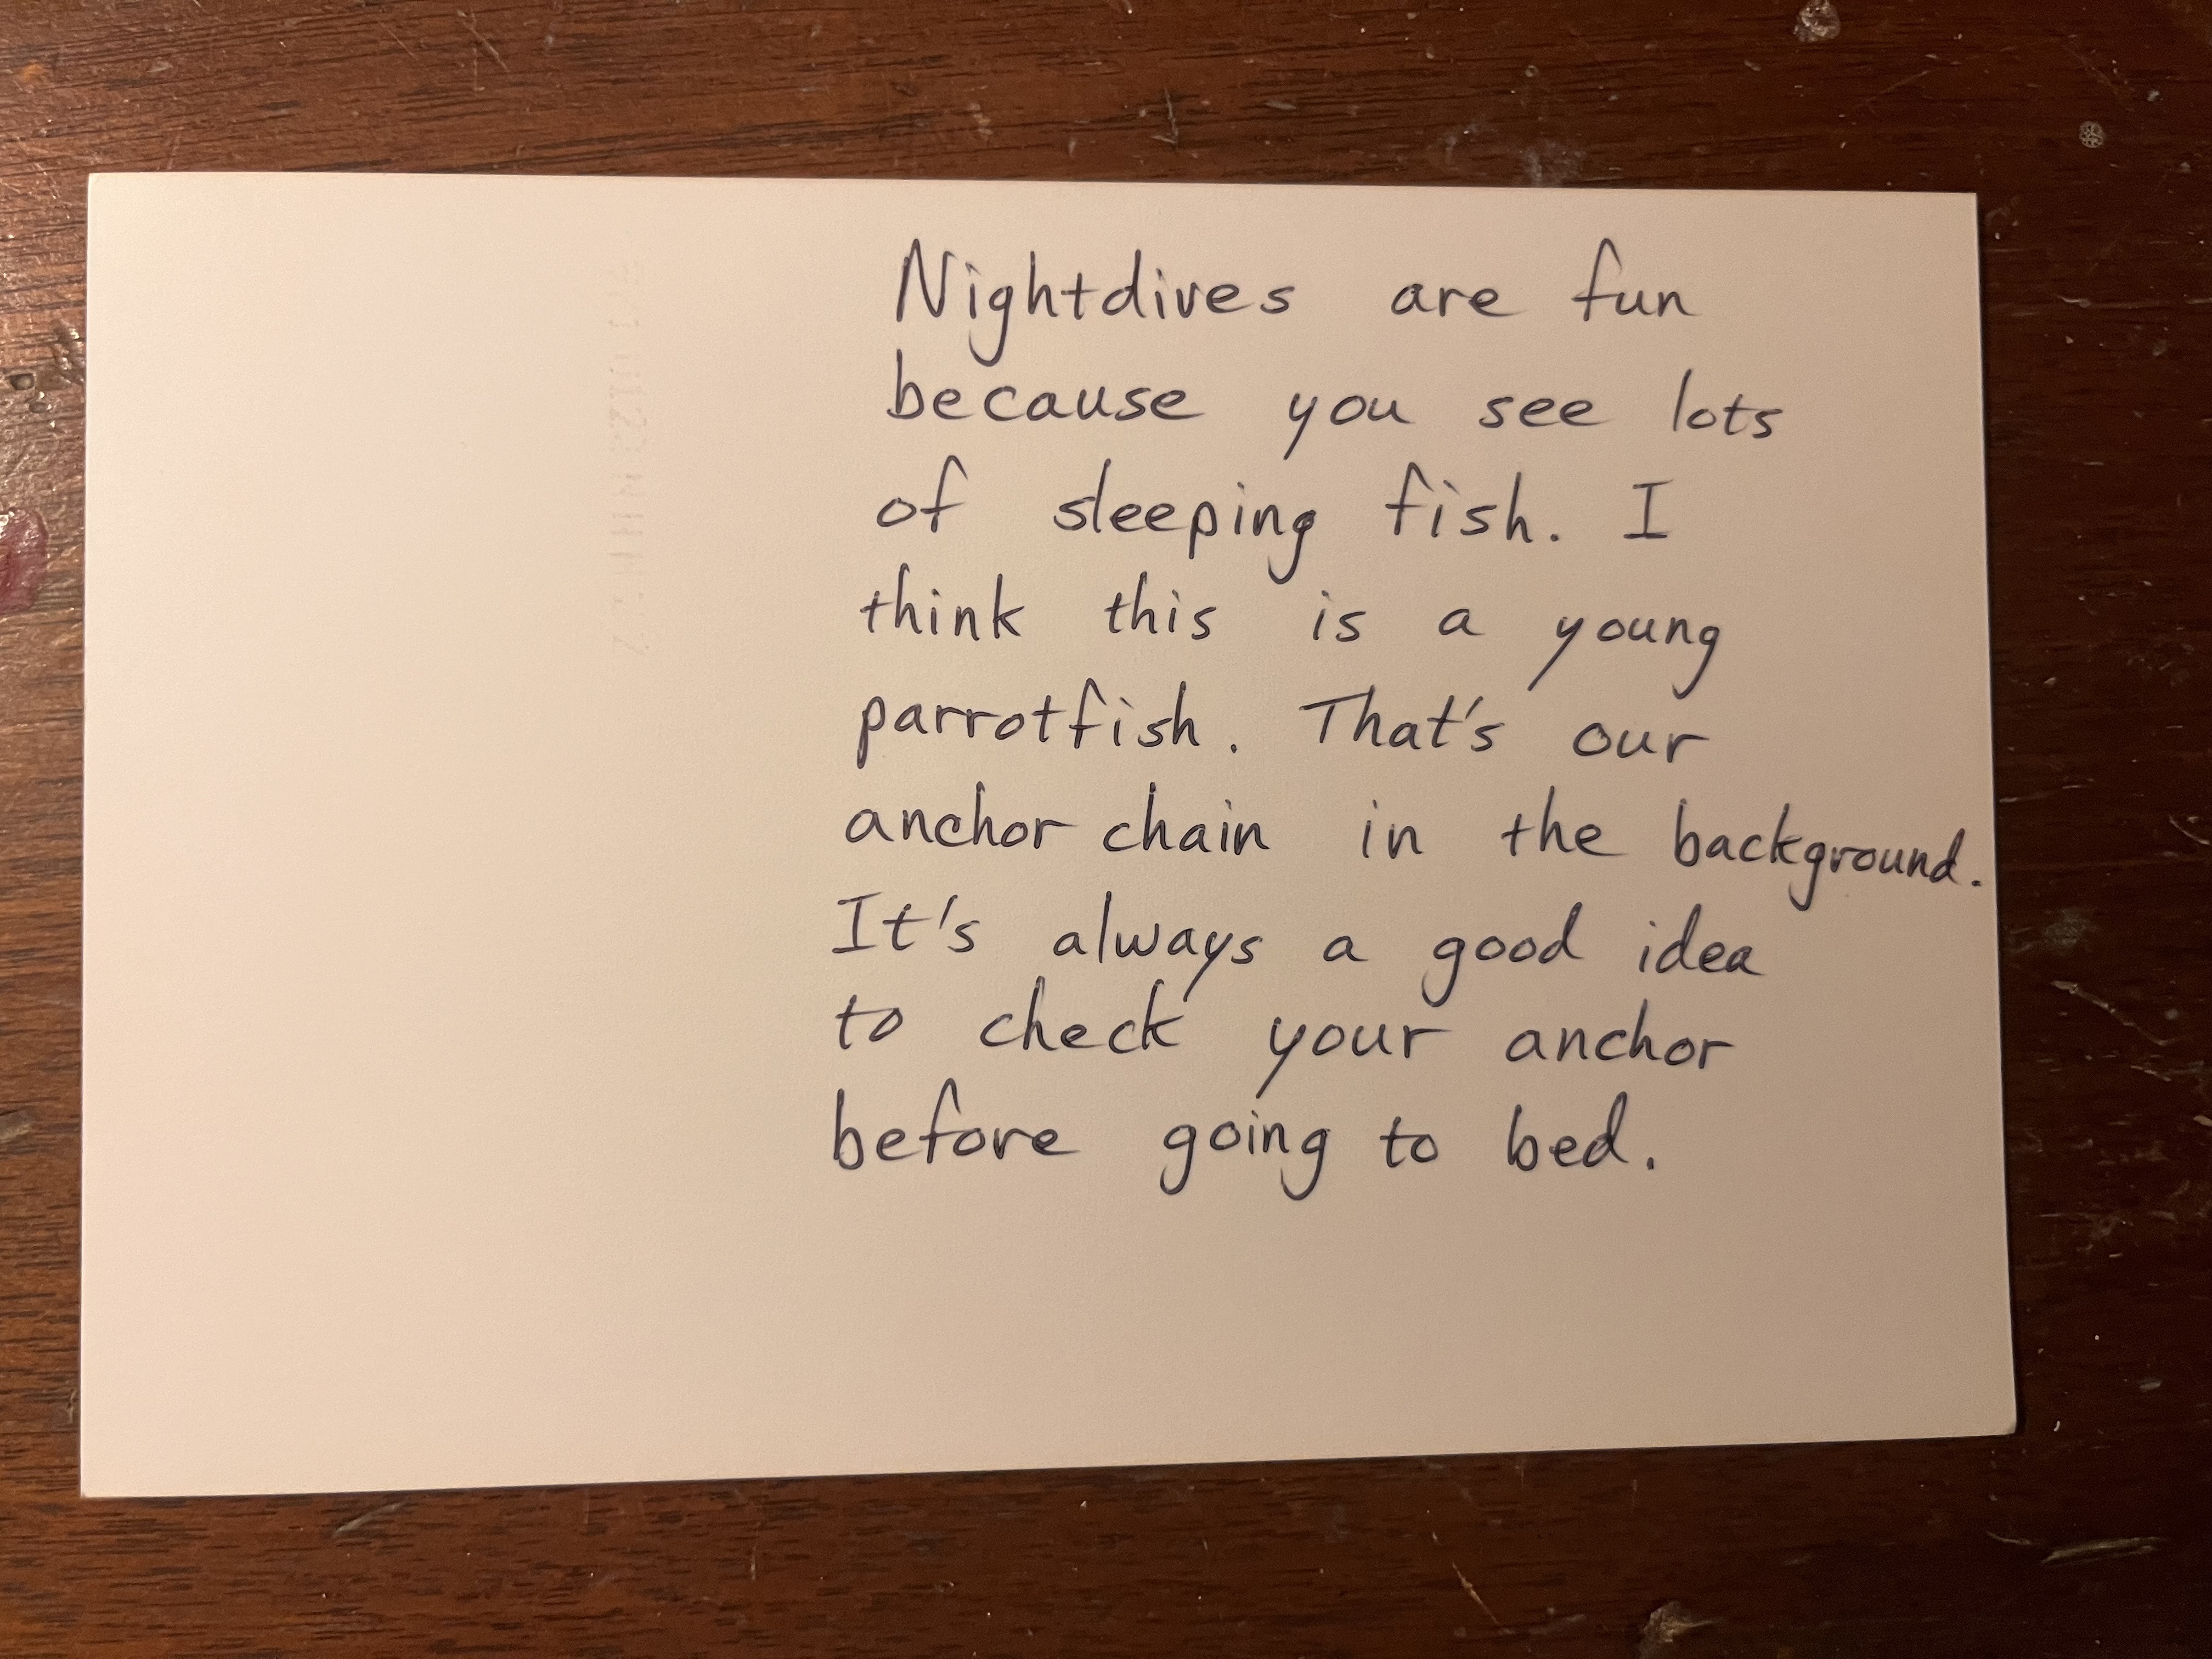 Nightdives are fun
because you see lots
of sleeping fish. I
think this is a young
parrotfish. That's our
anchor chain in the background.
It's always a good idea
to check your anchor
before going to bed.